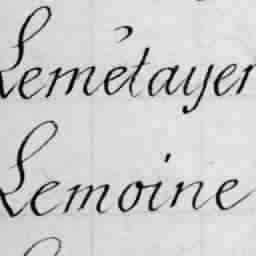 Lemétayer
Lemoine